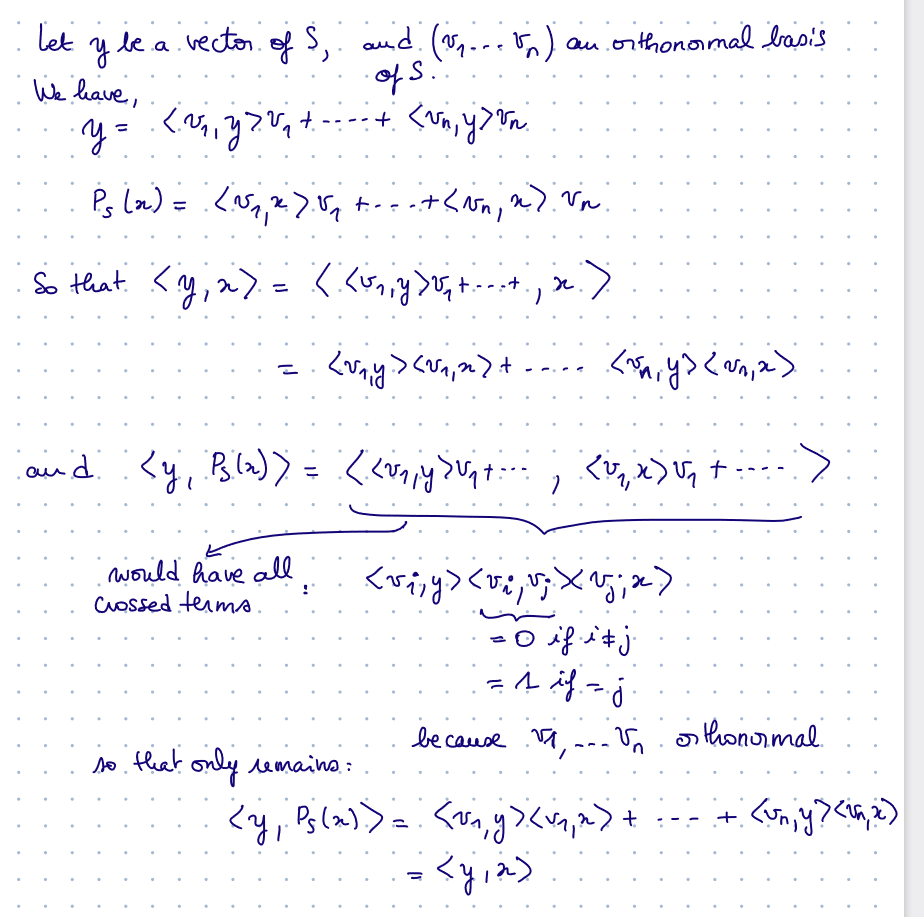 Let y be a vector of S, and (v₁ --- vₙ) an orthonormal basis
of S.
We have,
y = <v₁, y>v₁ + ----+ <vₙ, y>vₙ
P_S(x) = <v₁, x> v₁ +---+<vₙ, x> vₙ
So that <y, x> = < <v₁, y>v₁+---+ , x >
= <v₁, y><v₁, x> + ----- <vₙ, y><vₙ, x>
and <y, P_S(x)> = <<v₁, y>v₁+--- , <v₁, x>v₁ + ---- >
would have all
crossed terms : <vᵢ, y><vᵢ, vⱼ><vⱼ, x>
= 0 if i≠j
= 1 if = j
because v₁, --- vₙ orthonormal
so that only remains:
<y, P_S(x)> = <v₁, y><v₁, x> + --- + <vₙ, y><vₙ, x>
= <y, x>